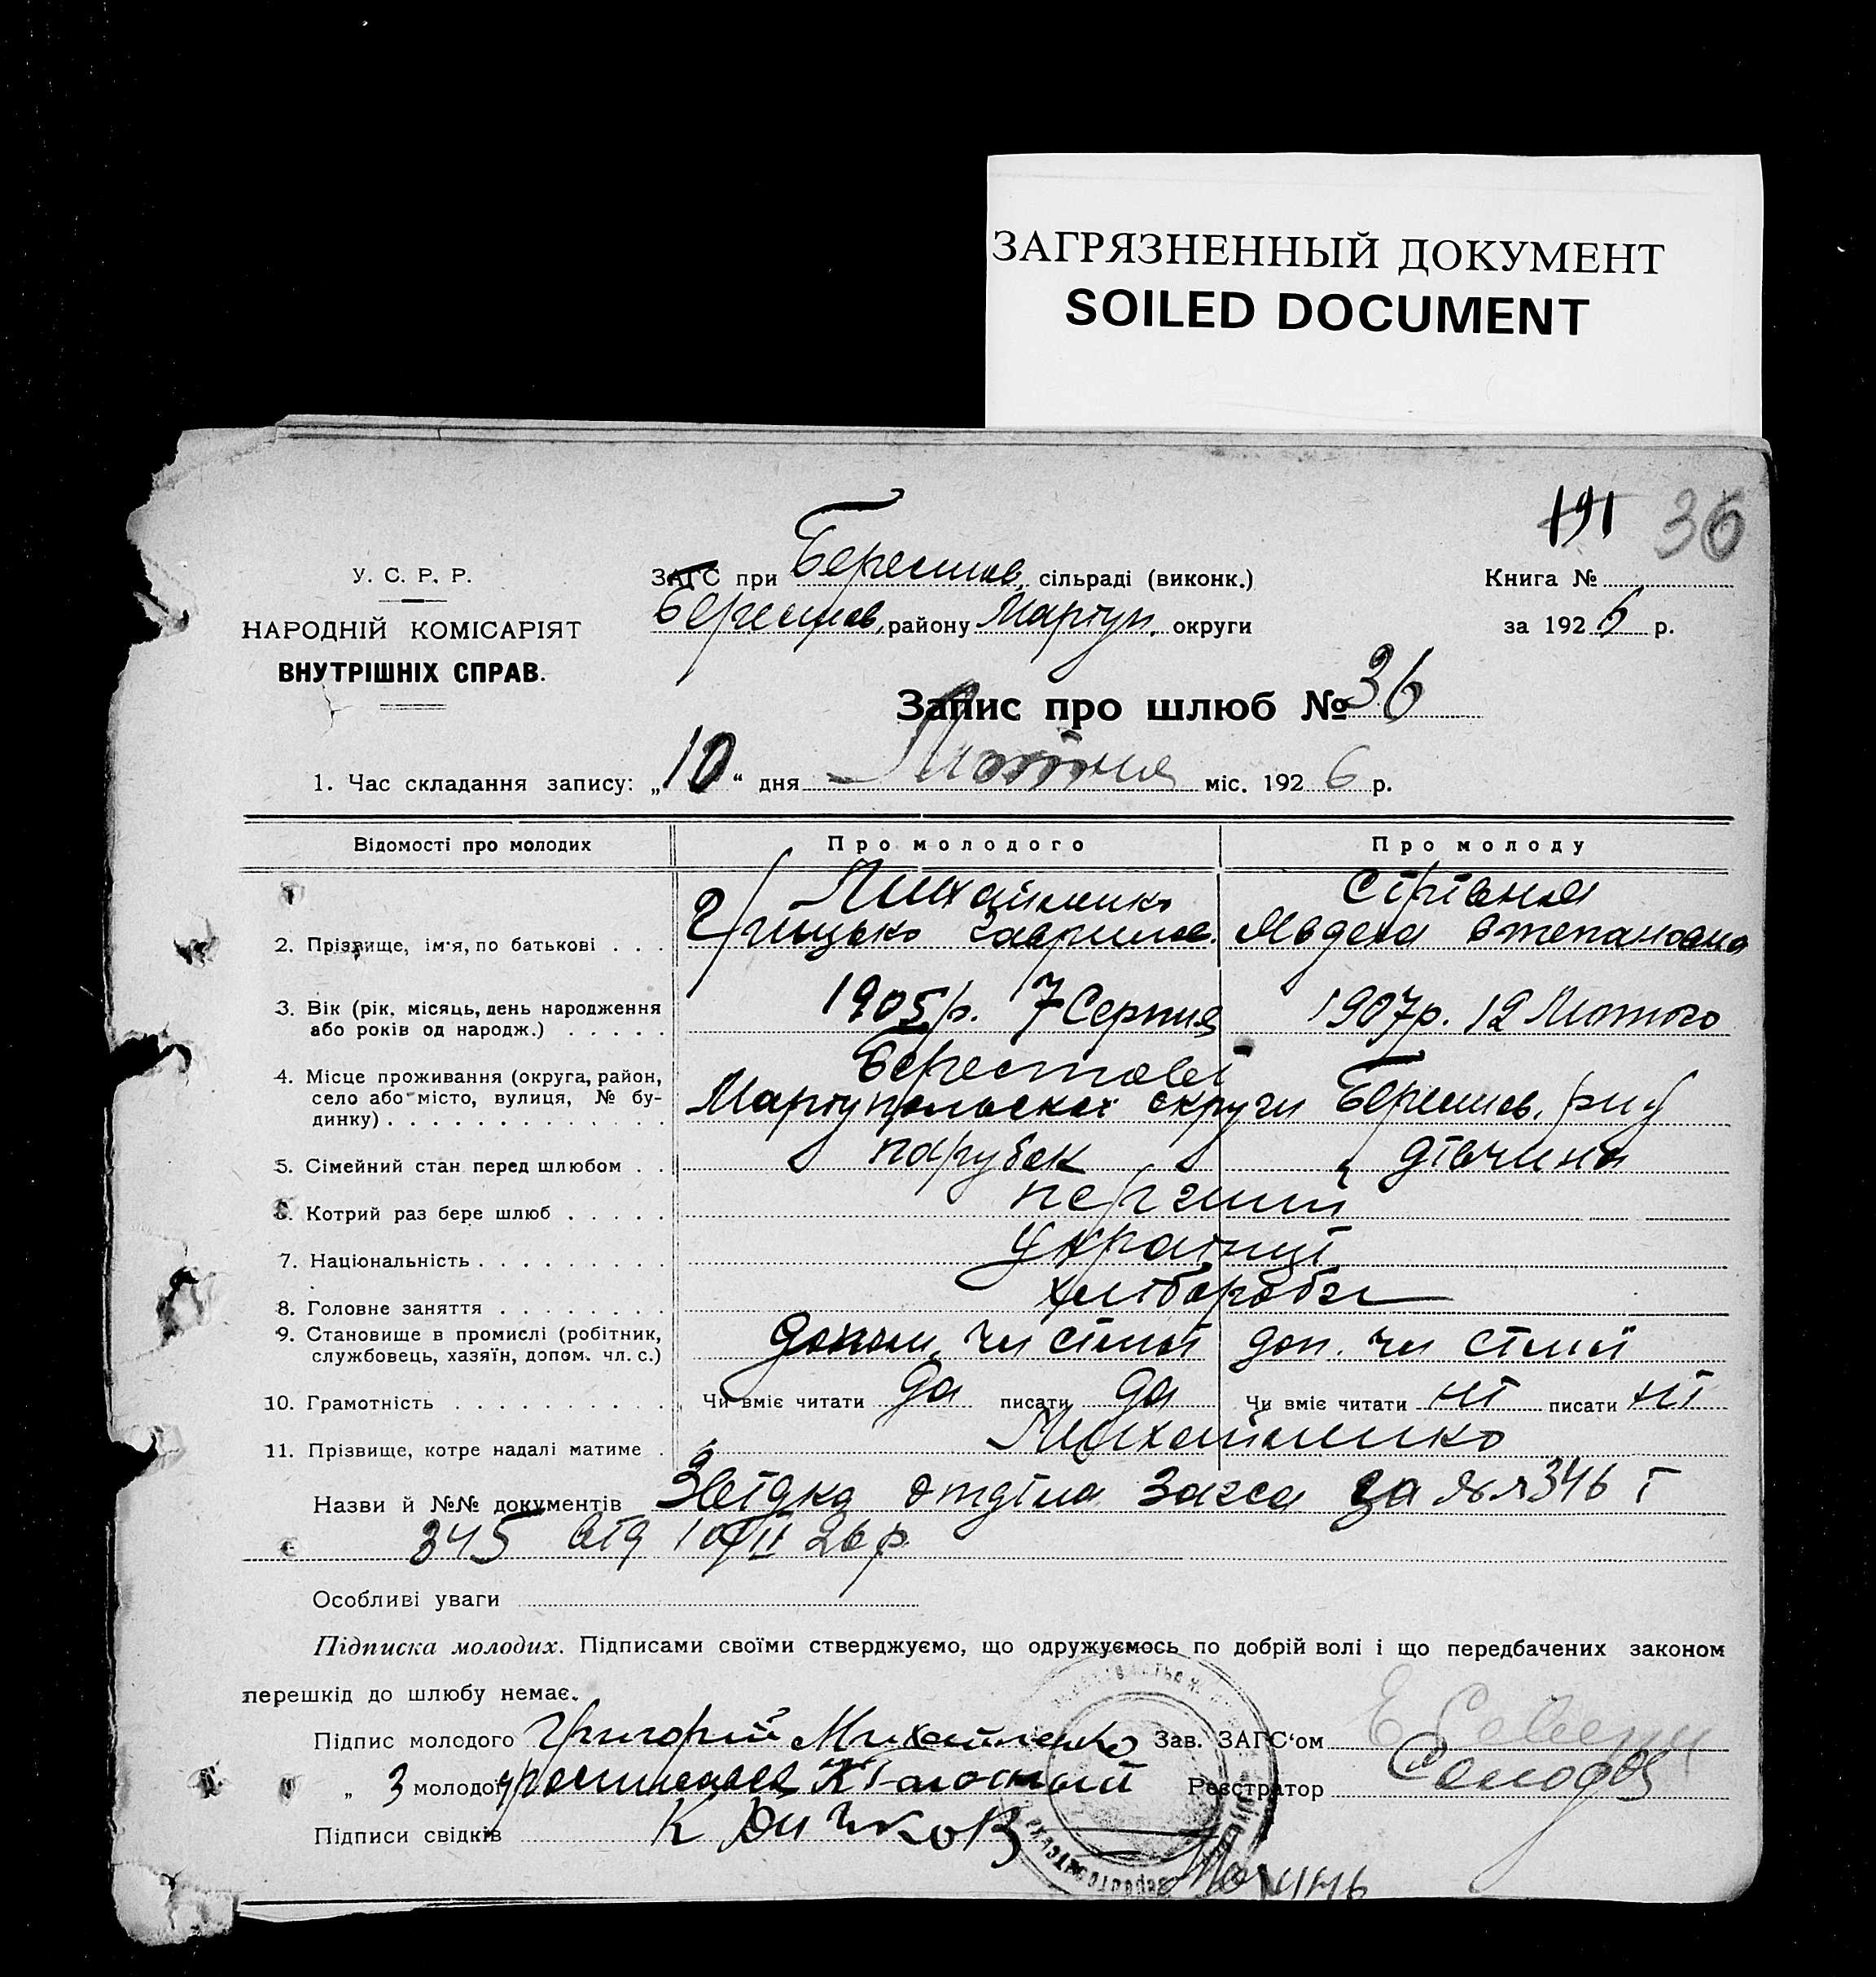 ЗАГРЯЗНЕННЫЙ ДОКУМЕНТ
SOILED DOCUMENT
191 36
У. С. Р. Р.
НАРОДНІЙ КОМІСАРІЯТ
ВНУТРІШНІХ СПРАВ.
ЗАГС при Берестов. сільраді (виконк.)
Берестов. району Маріуп. округи
Книга №
за 1926 р.
Запис про шлюб № 36
1. Час складання запису: „10“ дня міс. 1926 р.
Відомості про молодих Про молодого Про молоду
2. Прізвище, ім'я, по батькові . . . Михайленко Грицько Гаврилов. Явдоха Степановна
3. Вік (рік, місяць, день народження або років од народж.) . . . . . 1905р. 7 Серпня 1907р. 12 Лютого
4. Місце проживання (округа, район, село або місто, вулиця, № будинку) . . . . . . . . . . . . . Берестової Маріупольскої округи Берестов. р-ну
5. Сімейний стан перед шлюбом . . парубок дівчина
6. Котрий раз бере шлюб . . . . . перший
7. Національність . . . . . . . . . Українці
8. Головне заняття . . . . . . . . хлібороби
9. Становище в промислі (робітник, службовець, хазяїн, допом. чл. с.) допом. чл сімї доп. чл сімї
10. Грамотність . . . . . . . . . . . Чи вміє читати да писати да Чи вміє читати ні писати ні
11. Прізвище, котре надалі матиме . Михайленко
Назви й №№ документів Звідка отділа Загса за №№ 346 і
345 від 10/II 26 р
Особливі уваги
Підписка молодих. Підписами своїми стверджуємо, що одружуємось по добрій волі і що передбачених законом
перешкід до шлюбу немає.
Підпис молодого Григорий Михайленко Зав. ЗАГС‘ом
„ З молодої Реєстратор
Підписи свідків